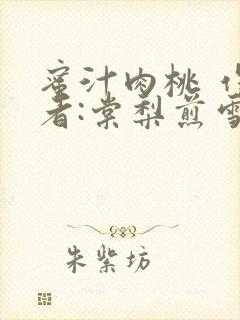 蜜汁肉桃
者:棠梨煎雪
朱紫坊